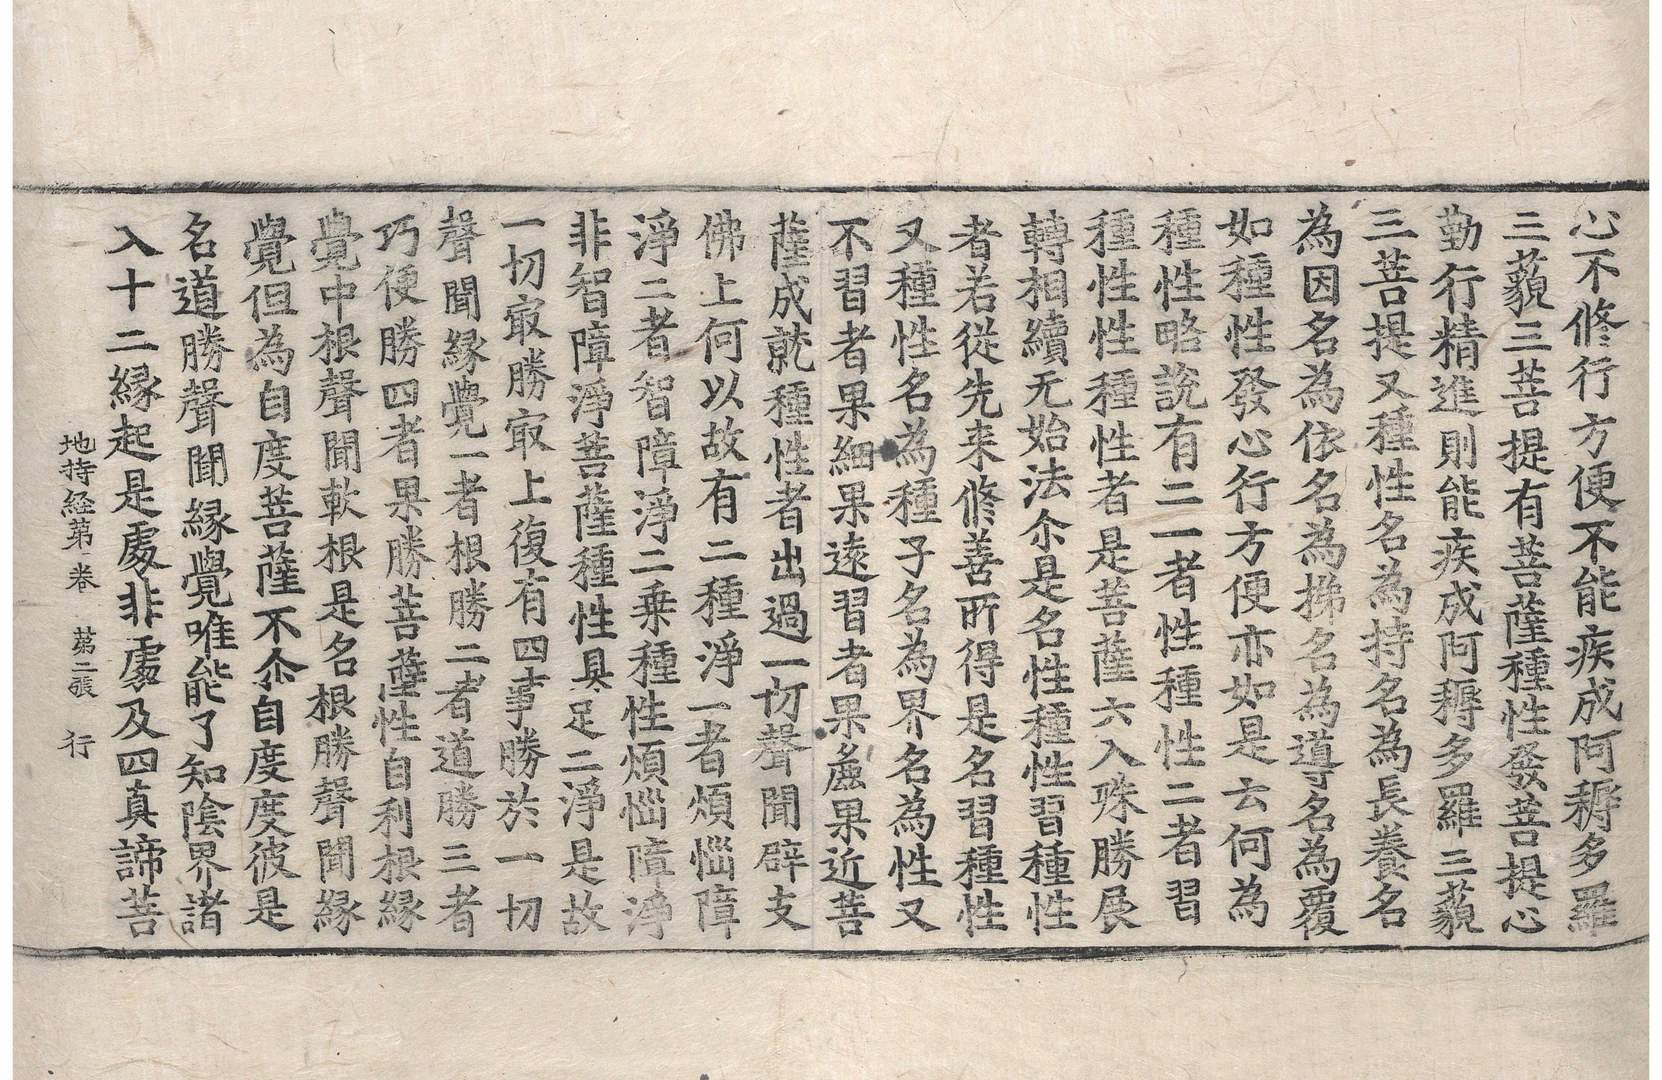 心不修行方便不能疾成阿耨多羅
三藐三菩提有菩薩種性發菩提心
勤行精進則能疾成阿耨多羅三藐
三菩提又種性名為持名為長養名
為因名為依名為梯名為導名為覆
如種性發心行方便亦如是云何為
種性略說有二一者性種性二者習
種性性種性者是菩薩六入殊勝展
轉相續无始法尒是名性種性習種性
者若從先来修善所得是名習種性
又種性名為種子名為界名為性又
不習者果細果遠習者果麁果近菩
薩成就種性者出過一切聲聞辟支
佛上何以故有二種淨一者煩惱障
淨二者智障淨二乗種性煩惱障淨
非智障淨菩薩種性具足二淨是故
一切㝡勝㝡上復有四事勝於一切
聲聞縁覺一者根勝二者道勝三者
巧便勝四者果勝菩薩性自利根縁
覺中根聲聞軟根是名根勝聲聞縁
覺但為自度菩薩不尒自度度彼是
名道勝聲聞縁覺唯能了知陰界諸
入十二縁起是處非處及四真諦菩
地持経苐一卷 苐二張 行